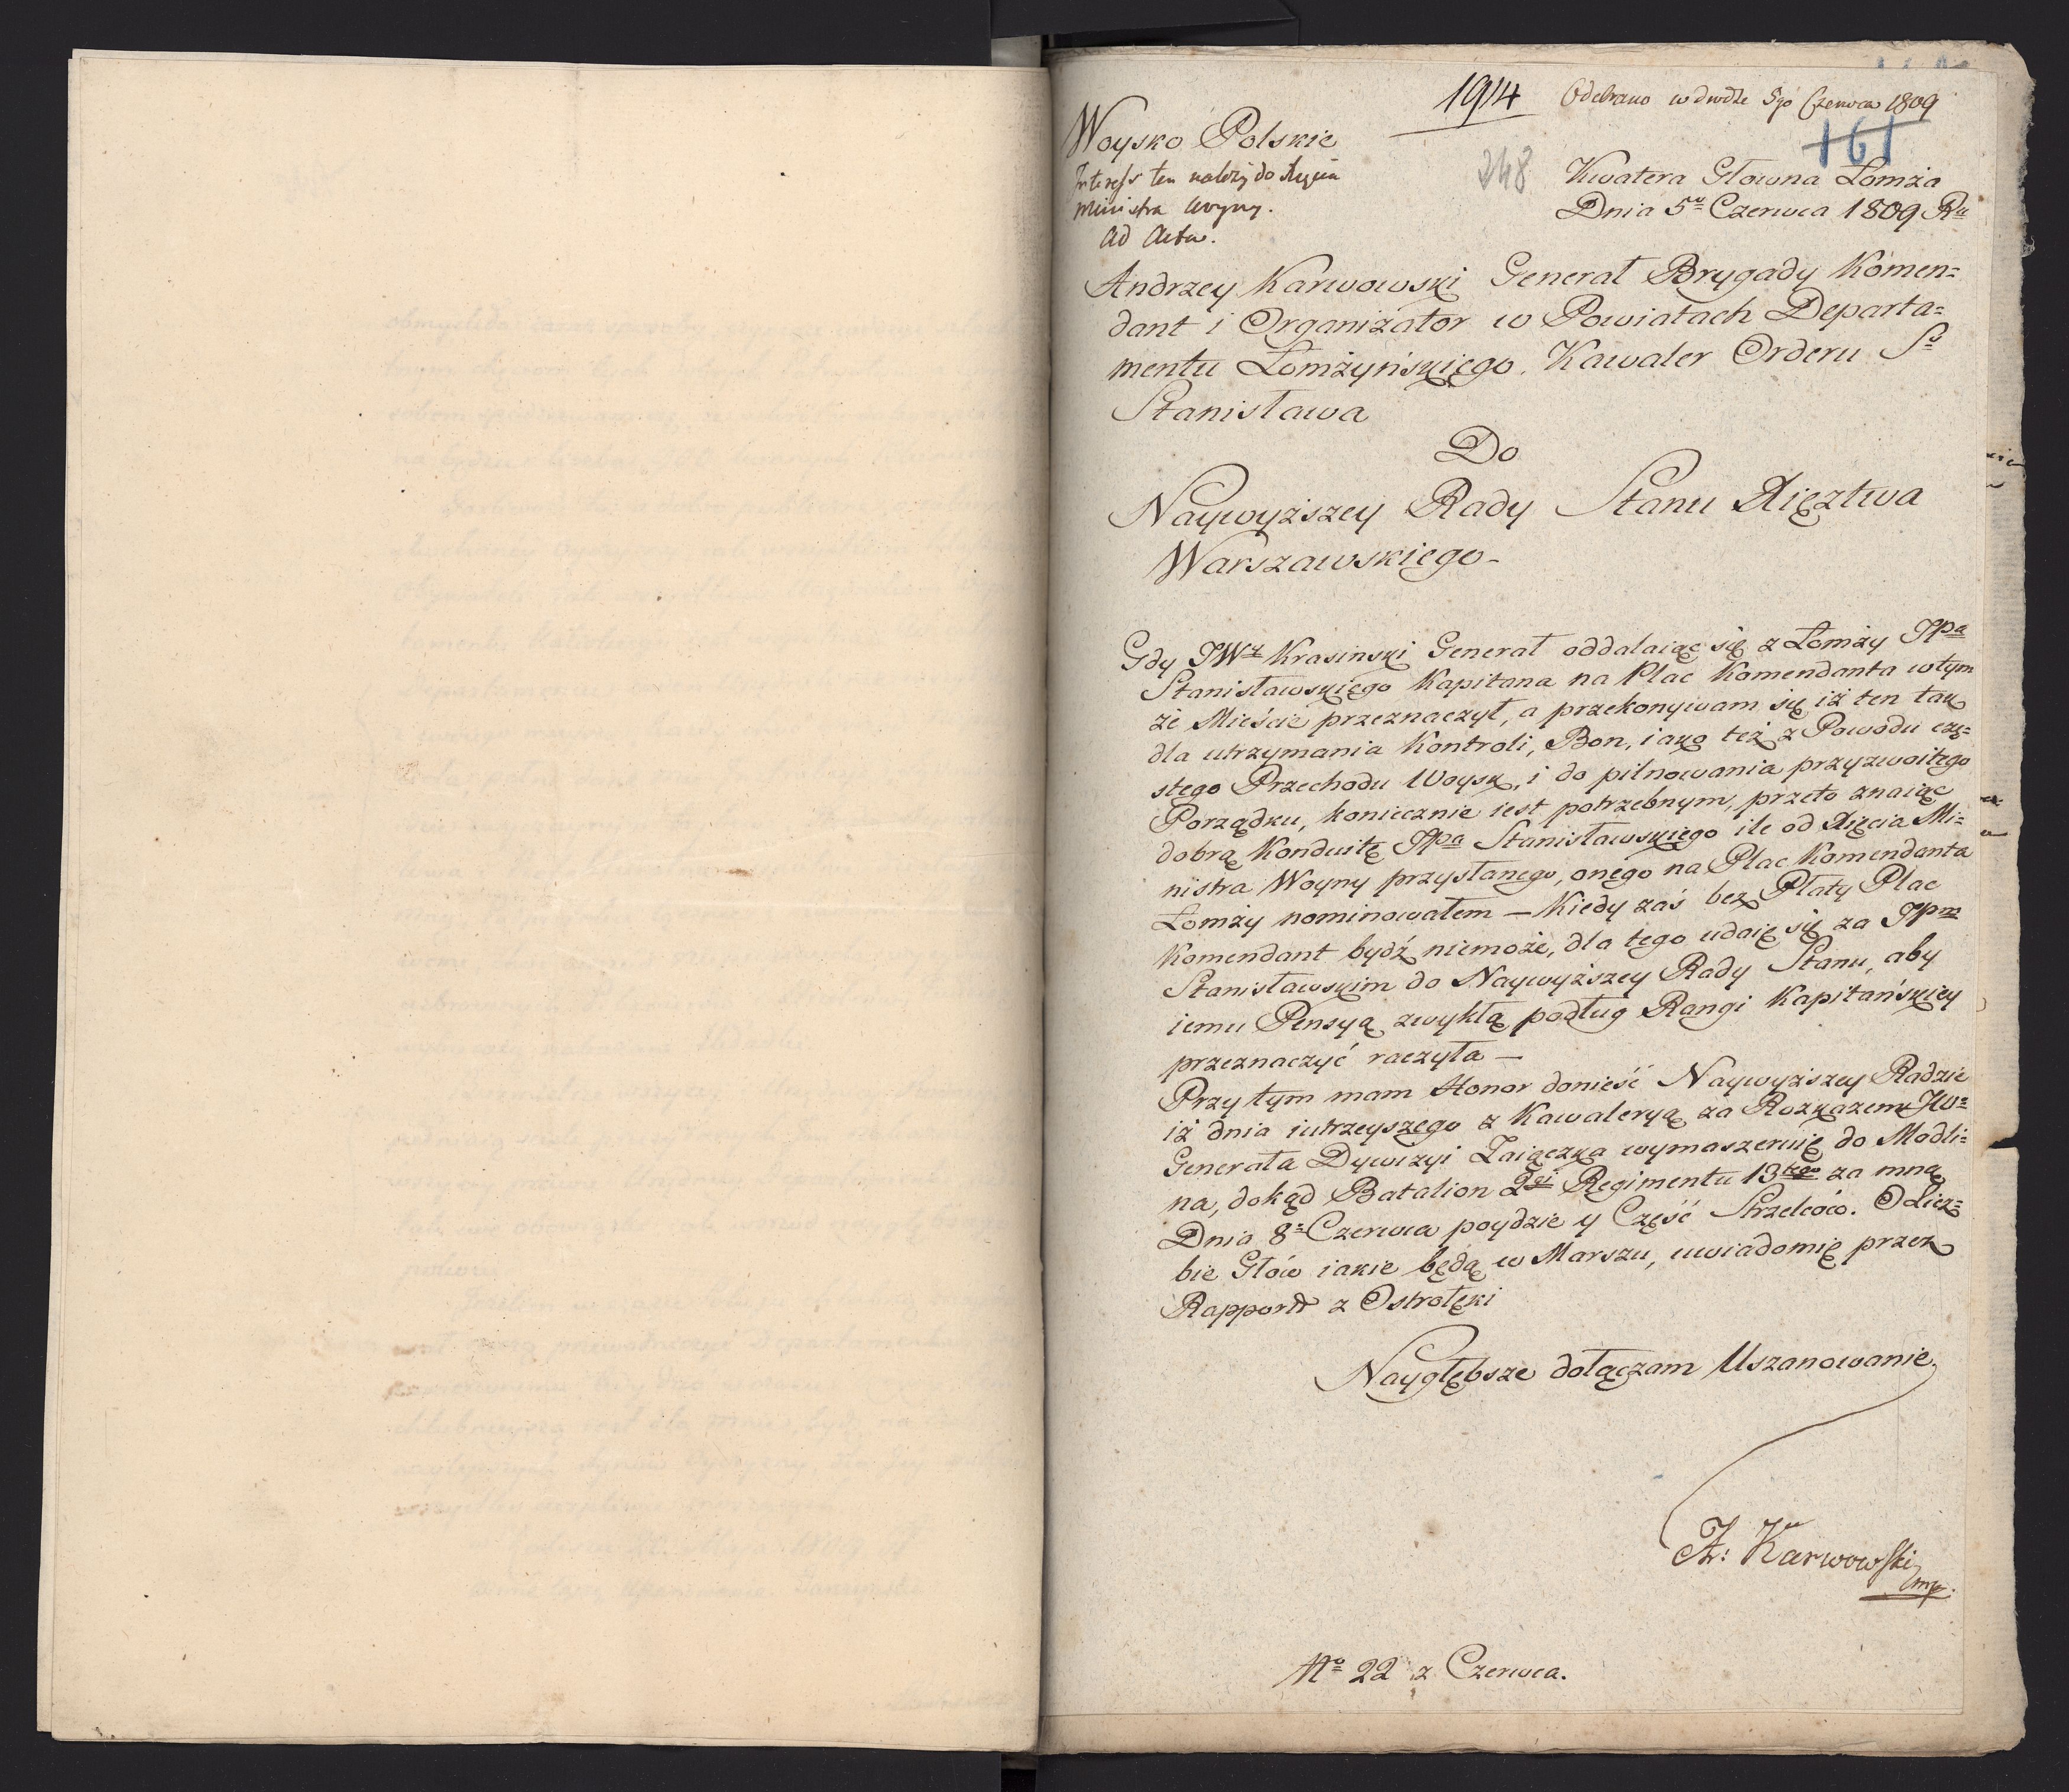 1914 Odebrano w drodze 5go Czerwca 1809
161
Woysko Polskie
248
Interess ten należy do Xięcia
Ministra Woyny.
Ad Acta.
Kwatera Głowna Łomża
Dnia 5go Czerwca 1809 Ru
Andrzey Karwowski Generał Brygady Komen=
dant i Organizator w Powiatach Departa=
mentu Łomżyńskięgo. Kawaler Orderu So
Stanisława
Do
Naywyższey Rady Stanu Xięztwa
Warszawskięgo-
Gdy JWz Krasinski Generał oddalaiąc się z Łomży JPa
Stanisławskięgo Kapitana na Plac Komendanta w tym
że Mieście przeznaczył, a przekonywam się iż ten tak
dla utrzymania Kontroli, Bon, iako też z Powodu czę=
stego Przechodu Woysk, i do pilnowania przyzwoitęgo
Porządku, koniecznie iest potrzebnym, przeto znaiąc
dobrą Konduitę JPa Stanisławskięgo ile od Xięcia Mi=
nistra Woyny przysłanego, onęgo na Plac Komendanta
Łomży nominowałem — Kiedy zaś bez Płaty Plac
Komendant bydź niemoże, dla tęgo udaię się za JPm
Stanisławskim do Naywyższey Rady Stanu, aby
iemu Pensyą zwykłą podług Rangi Kapitańskiey
przeznaczyć raczyła —
Przy tym mam Honor donieść Naywyższey Radzie
iż dnia iutrzeyszego z Kawaleryą za Rozkazem JW=
Generała Dywizyi Zaiączka wymaszeruię do Modli=
na, dokąd Batalion 2gi Regimentu 13tego za mną
Dnia 8= Czerwca poydzie y Część Strzelców. O Licz=
bie Głów iakie będą w Marszu, uwiadomię przez
Rapport z Ostrołęki
Naygłębsze dołączam Uszanowanie
Karwowski
mp.
No 22 z Czerwca.